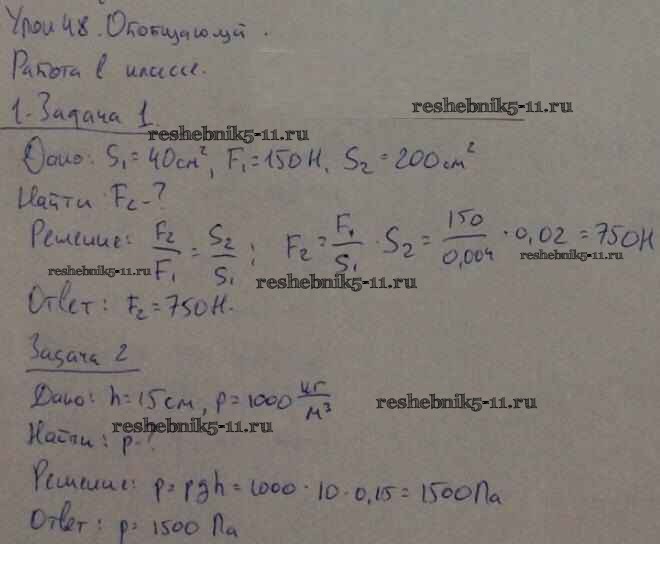 Урок 48. Обобщающий.
Работа в классе.
reshebnik5-11.ru
1. Задача 1.
reshebnik5-11.ru
Дано: S₁ = 40 см², F₁ = 150 Н, S₂ = 200 см²
Найти F₂ - ?
Решение: F₂/F₁ = S₂/S₁; F₂ = F₁/S₁ · S₂ = 150/0,004 · 0,02 = 750 Н
reshebnik5-11.ru reshebnik5-11.ru reshebnik5-11.ru
Ответ: F₂ = 750 Н.
Задача 2
Дано: h = 15 см, ρ = 1000 кг/м³
reshebnik5-11.ru
Найти: p - ?
reshebnik5-11.ru
Решение: p = ρgh = 1000 · 10 · 0,15 = 1500 Па
Ответ: p = 1500 Па